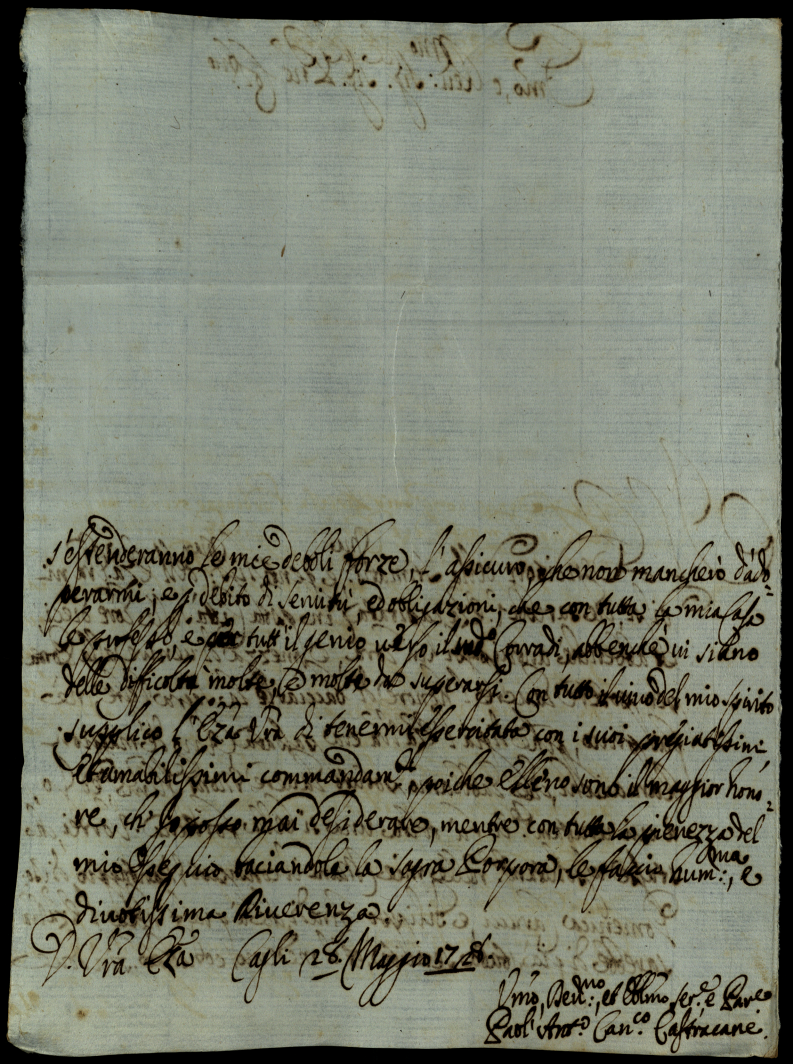 s'estenderanno le mie deboli forze, l'assicuro, che non mancherò d'ado-
perarmi, e p debito di servitù, ed obligazioni, che con tutta la mia Casa
le professo, e tutt'il genio verso il Corradi, abbenche vi siano
delle difficoltà molte, e molte da superarsi. Con tutto il vivo del mio spirito
supplico l'Eza Vra di tenermi essercitata con i suoi pregiatissimi,
et amabilissimi commandam.ti, poiche essino sono il maggior hono-
re, ch'Io posso mai desiderare, mentre con tutta la pienezza del
mio Ossequio baciandole la sagra Porpora, le faccio hum.ma, e
divotissima Riverenza.
D. Vra Eza Cagli 28 Maggio 1728
Vmo, Dev.mo, et Obblmo ser.e e Par.e
Paol'Ant.o Can.co Castracane.